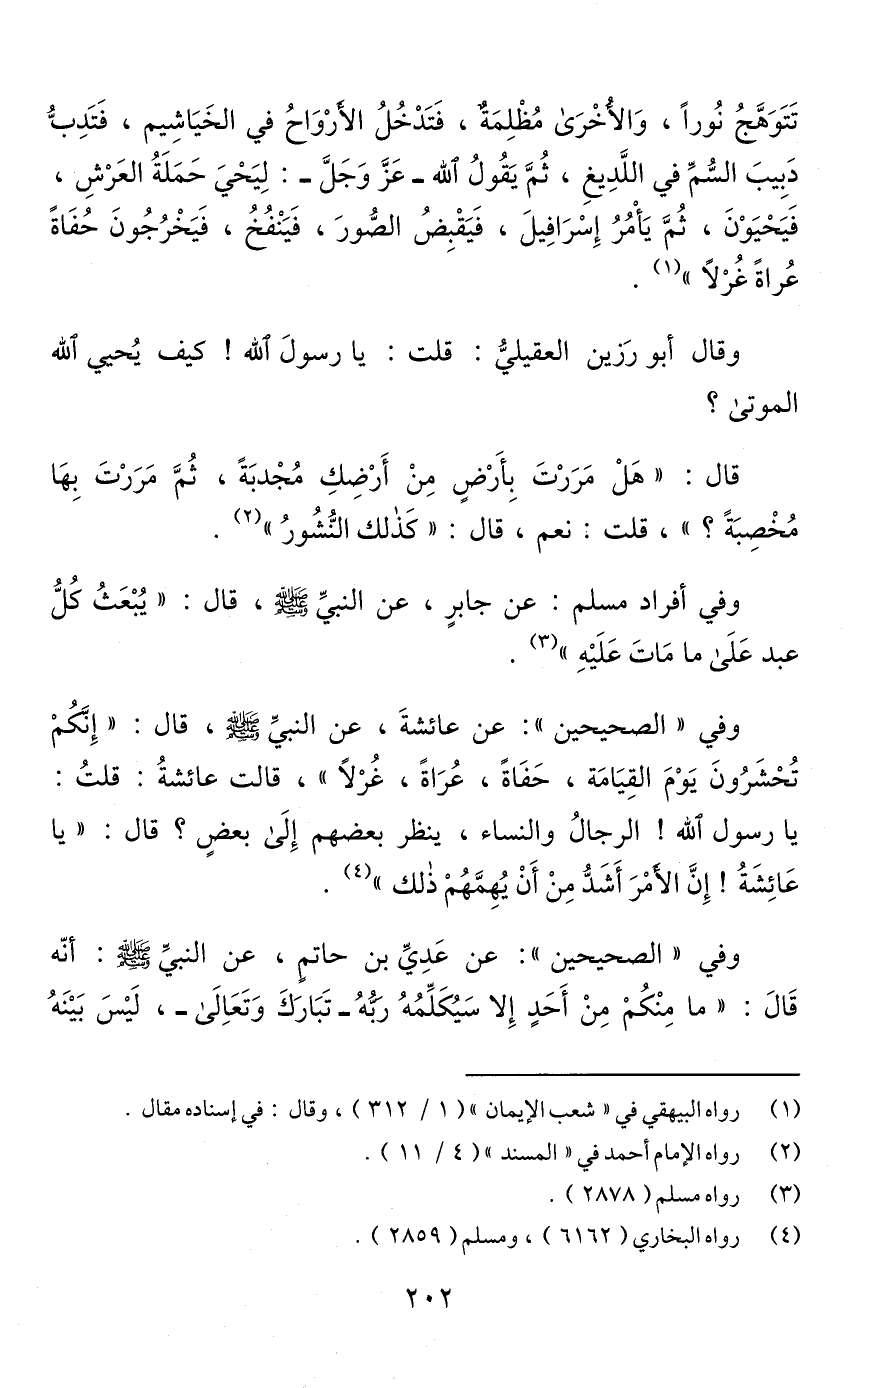 تَتَوَهَّجُ نُوراً ، وَالأُخْرَىٰ مُظْلِمَةٌ ، فَتَدْخُلُ الأَرْوَاحُ في الخَيَاشِيم ، فَتَدِبُّ
دَبِيبَ السُّمِّ في اللَّدِيغِ ، ثُمَّ يَقُولُ ٱلله ـ عَزَّ وَجَلَّ ـ : لِيَحْيَ حَمَلَةُ العَرْشِ ،
فَيَحْيَوْنَ ، ثُمَّ يَأْمُرُ إِسْرَافِيلَ ، فَيَقْبِضُ الصُّورَ ، فَيَنْفُخُ ، فَيَخْرُجُونَ حُفَاةً
عُراةً غُرْلاً »(١) .
وقال أبو رَزين العقيليُّ : قلت : يا رسولَ ٱلله ! كيف يُحيي ٱلله
الموتىٰ ؟
قال : « هَلْ مَرَرْتَ بِأَرْضٍ مِنْ أَرْضِكِ مُجْدبَةً ، ثُمَّ مَرَرْتَ بِهَا
مُخْصِبَةً ؟ » ، قلت : نعم ، قال : « كَذٰلك النُّشُورُ »(٢) .
وفي أفراد مسلم : عن جابرٍ ، عن النبيِّ ﷺ ، قال : « يُبْعَثُ كُلُّ
عبد عَلَىٰ ما مَاتَ عَلَيْهِ »(٣) .
وفي « الصحيحين »: عن عائشةَ ، عن النبيِّ ﷺ ، قال : « إِنَّكُمْ
تُحْشَرُونَ يَوْمَ القِيَامَة ، حَفَاةً ، عُرَاةً ، غُرْلاً » ، قالت عائشةُ : قلتُ :
يا رسول ٱلله ! الرجالُ والنساء ، ينظر بعضهم إِلَىٰ بعضٍ ؟ قال : « يا
عَائِشَةُ ! إِنَّ الأَمْرَ أَشَدُّ مِنْ أَنْ يُهِمَّهُمْ ذٰلك »(٤) .
وفي « الصحيحين »: عن عَدِيِّ بن حاتمٍ ، عن النبيِّ ﷺ : أنّه
قَالَ : « ما مِنْكُمْ مِنْ أَحَدٍ إِلا سَيُكَلِّمُهُ رَبُّهُ ـ تَبَارَكَ وَتَعَالَىٰ ـ ، لَيْسَ بَيْنَهُ
(١) رواه البيهقي في « شعب الإيمان » ( ١ / ٣١٢ ) ، وقال : في إسناده مقال .
(٢) رواه الإمام أحمد في « المسند » ( ٤ / ١١ ) .
(٣) رواه مسلم ( ٢٨٧٨ ) .
(٤) رواه البخاري ( ٦١٦٢ ) ، ومسلم ( ٢٨٥٩ ) .
٢٠٢